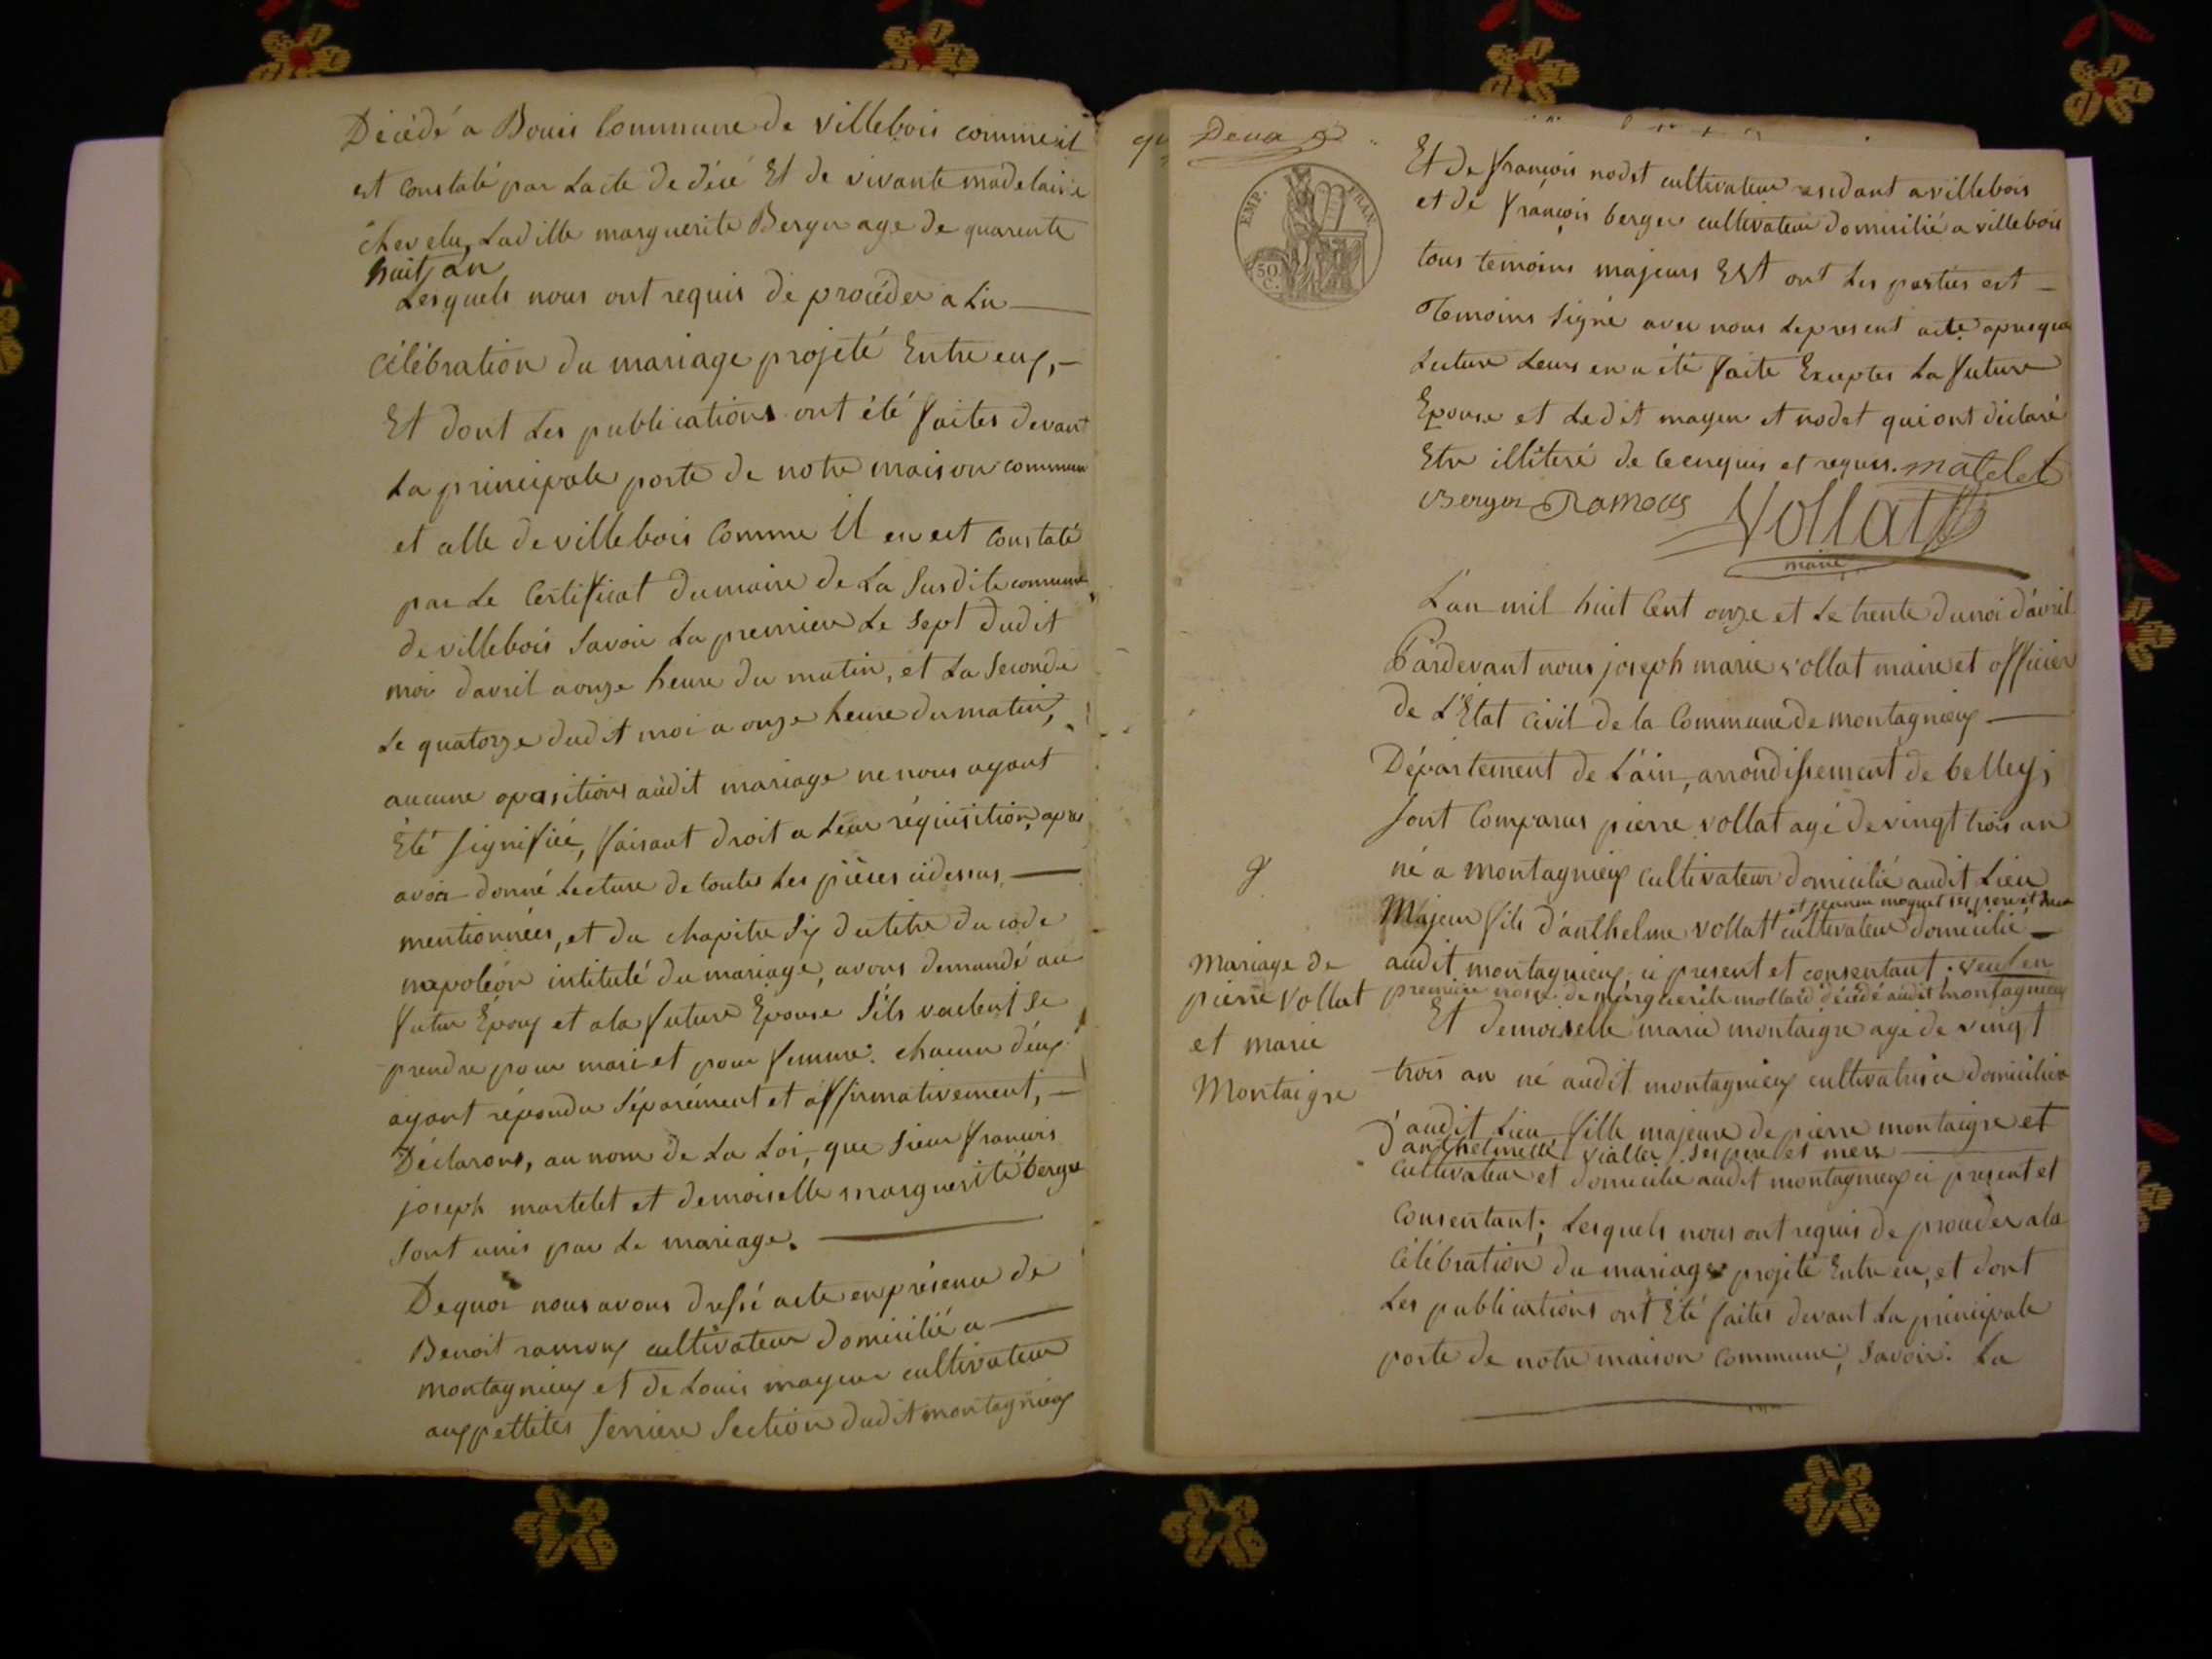 Décédé a Bouis Commune de villebois comme il
est constaté par Lacte de décé Et de vivante madelaine
chevelu, Ladille marguerite Berger age de quarente
huit an
Lesquels nous ont requis de procéder a La
Célébration du mariage projeté Entre eux, —
Et dont Les publications ont été faites devant
La principale porte de notre maison commune
et alle de villebois Comme Il en est Constaté
par Le Certificat du maire de La Susdite commune
de villebois Savoir La premiere Le Sept dudit
moi davril a onze heure du matin, et La Seconde
Le quatorze dudit moi a onze heure du matin,
aucune opositions audit mariage ne nous ayant
Été Signifiée, faisant droit a Leur réquisition, apres
avoir donné Lecture de toutes Les pièces cidessus —
mentionnées, et du chapitre Six du titre du code
napoléon intitulé du mariage, avons demandé au
futur Époux et a la future Epouse S'ils veulent Se
prendre pour mari et pour femme. chacun d'eux
ayant répondu Séparément et affirmativement, —
Déclarons, au nom de La Loi, que Sieur francois
joseph martelet et demoiselle marguerite berger
Sont unis par Le mariage. —
De quoi nous avons dressé acte en présence de
Benoit ramoux cultivateur domicilié a —
montagnieux et de Louis mayeur cultivateur
aux pettites Serriere Section dudit montagnieux
Deux
EMP. FRAN.
50. C.
Et de françois nodet cultivateur residant a villebois
et de françois berger cultivateur domicilié a villebois
tous temoins majeurs Est ont Les parties est —
Temoins Signé avec nous Le present acte apres que
Lecture Leurs en a été faite Exceptes La future
Epouse et Ledit mayeur et nodet qui ont déclaré
Etre illiteré de ce enquis et requis. matelet
Berger Ramoux Vollat
maire
L'an mil huit Cent onze et Le trente du moi d'avril
Pardevant nous joseph marie vollat maire et officier
de L'Etat Civil de la Commune de montagnieux —
Département de L'ain, arrondissement de belley,
Sont Comparus pierre vollat agé de vingt trois an
né a montagnieux cultivateur domicilié audit Lieu
et jeanne moguet ses pere et mere
Majeur fils d'anthelme vollat cultivateur domicilié —
Mariage de
pierre vollat
et marie
Montaigre
audit montagnieux ci present et consentant; veuf en
premiere nosse de marguerite mollard décédé audit montagnieux
Et demoiselle marie montaigre agé de vingt
trois an né audit montagnieux cultivatrice domiciliée
audit Lieu fille majeure de pierre montaigre et
d'anthelmette vialler ses pere et mere
cultivateur et domicilié audit montagnieux ci present et
Consentant; Lesquels nous ont requis de proceder a la
Célébration du mariage projeté Entre eu, et dont
Les publications ont Été faites devant La principale
porte de notre maison commune, Savoir. La